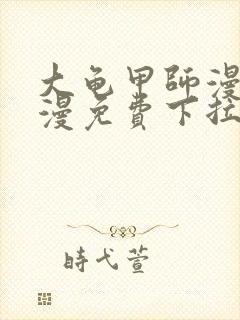 大龟甲師漫
漫免費下拉
時弋萱